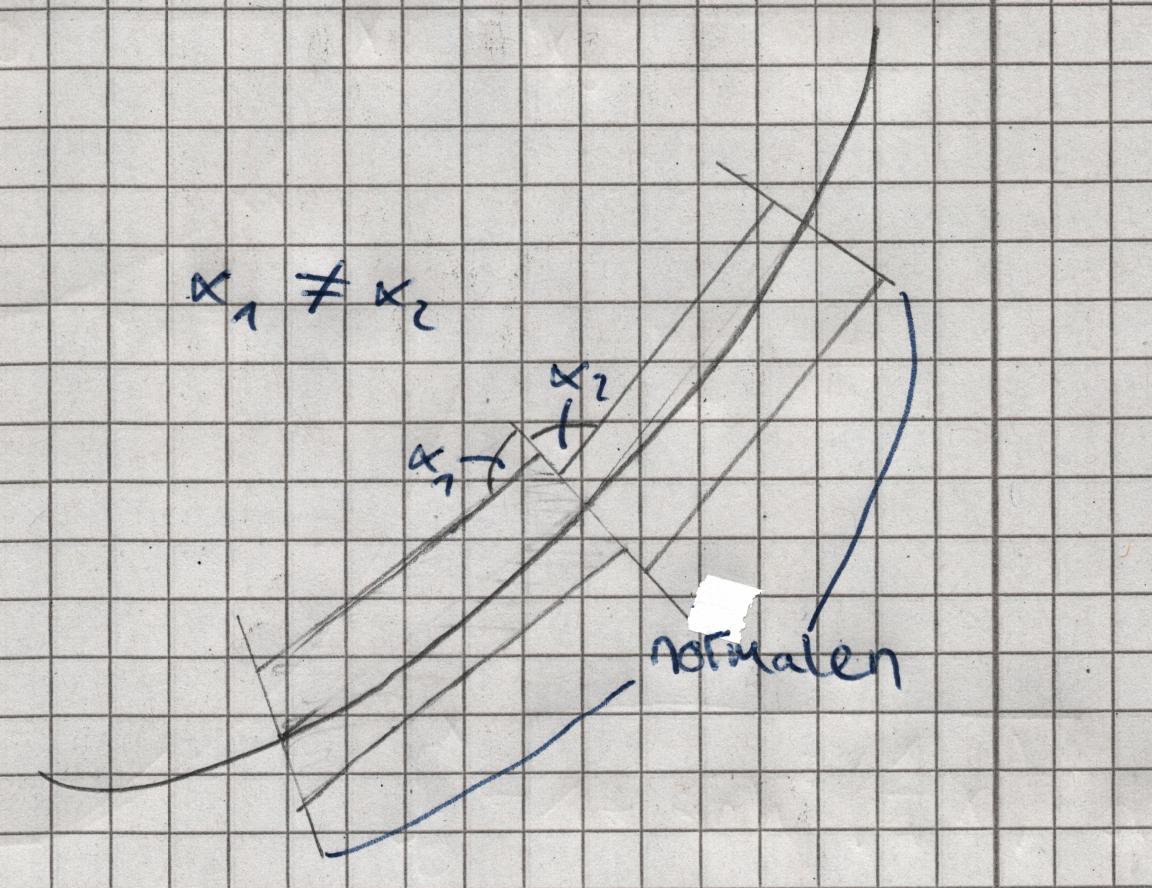 α₁ ≠ α₂
α₂
α₁
normalen